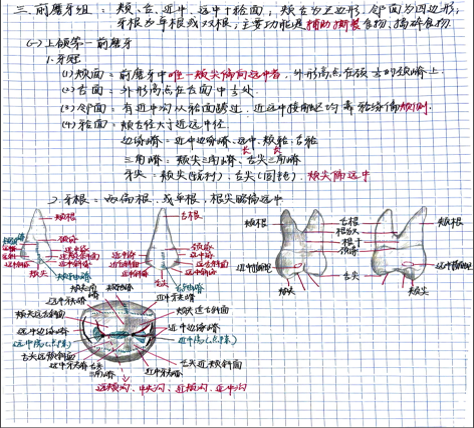 三. 前磨牙组：颊、舌、近中、远中、𬌗面，颊舌为五边形，邻面为四边形，
牙根为单根或双根，主要功能是辅助撕裂食物、捣碎食物.
(一) 上颌第一前磨牙
1. 牙冠
(1) 颊面：前磨牙中唯一颊尖偏向远中者，外形高点在颈1/3的颊颈嵴上.
(2) 舌面：外形高点在舌面中1/3处.
(3) 邻面：有近中沟从𬌗面跨过，近远中接触区均靠𬌗缘偏颊侧.
(4) 𬌗面：颊舌径大于近远中径.
边缘嵴：近中边缘嵴、远中、颊𬌗、舌𬌗
长 长
三角嵴：颊尖三角嵴、舌尖三角嵴
牙尖：颊尖(锐利)、舌尖(圆钝). 颊尖偏远中
2. 牙根：两偏根，或单根，根尖略偏远中
颊根 舌根 颊根 舌根 颊根
颈嵴
颊尖 舌尖
根干
颈嵴
舌尖
颊尖 颊尖
远中牙尖嵴 近中牙尖嵴
颊尖远舌斜面
远中边缘嵴 近中边缘嵴
远中窝(点隙) 近中窝(点隙)
舌尖远颊斜面 舌尖近颊斜面
远中牙尖嵴 舌尖三角嵴 近中牙尖嵴
远颊沟、中央沟、近颊沟、近中沟